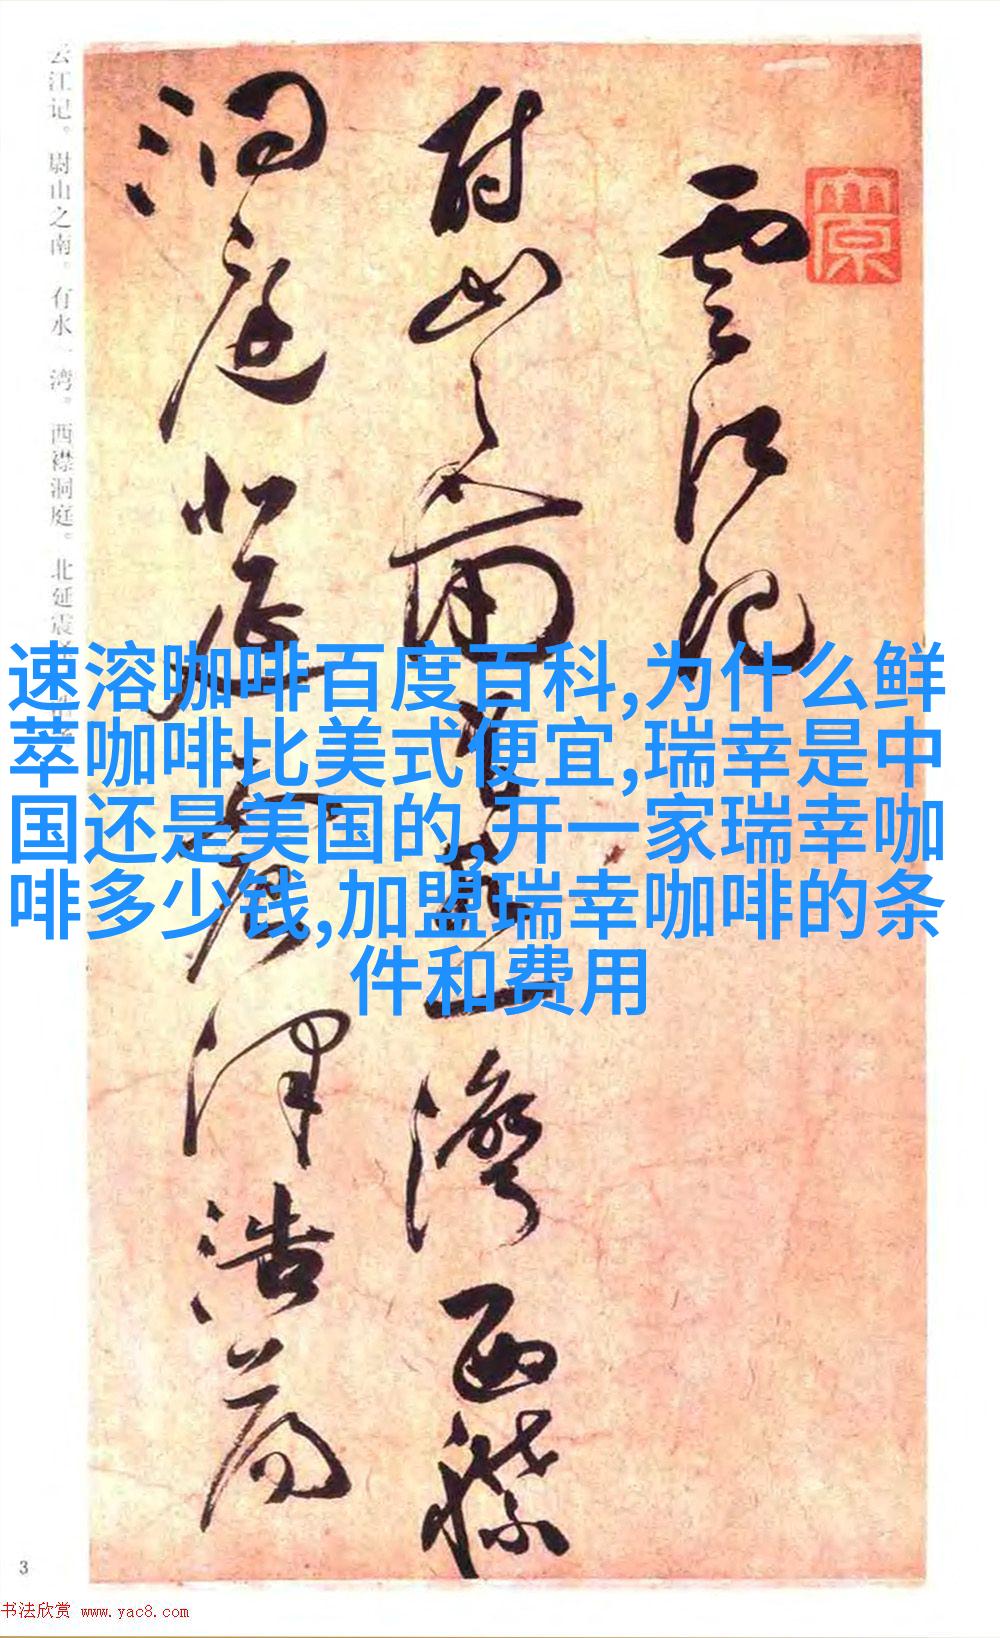 雲江記
尉山之南有水一灣西襟
洞庭北延震澤浩蕩
云江记。尉山之南。有水一湾。西襟洞庭。北延震
速溶咖啡百度百科,为什么鲜
萃咖啡比美式便宜,瑞幸是中
国还是美国的,开一家瑞幸咖
啡多少钱,加盟瑞幸咖啡的条
件和费用
3
书法欣赏 www.yac8.com